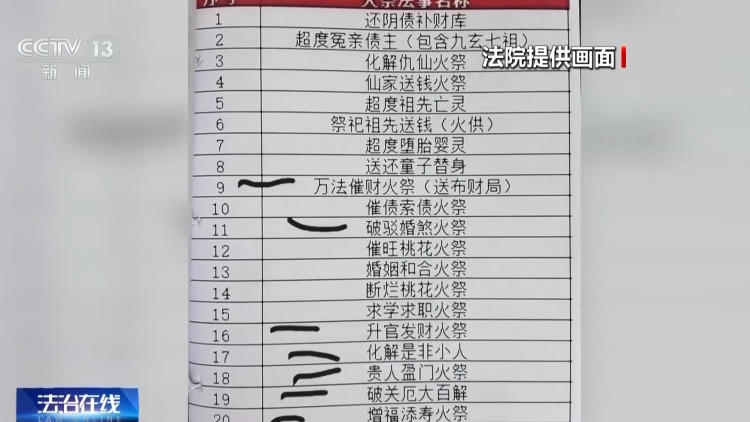 CCTV 13
新闻
法院提供画面
1 还阴债补财库
2 超度冤亲债主（包含九玄七祖）
3 化解仇仙火祭
4 仙家送钱火祭
5 超度祖先亡灵
6 祭祀祖先送钱（火供）
7 超度堕胎婴灵
8 送还童子替身
9 万法催财火祭（送布财局）
10 催债索债火祭
11 破驳婚煞火祭
12 催旺桃花火祭
13 婚姻和合火祭
14 断烂桃花火祭
15 求学求职火祭
16 升官发财火祭
17 化解是非小人
18 贵人盈门火祭
19 破关厄大百解
20 增福添寿火祭
法治在线